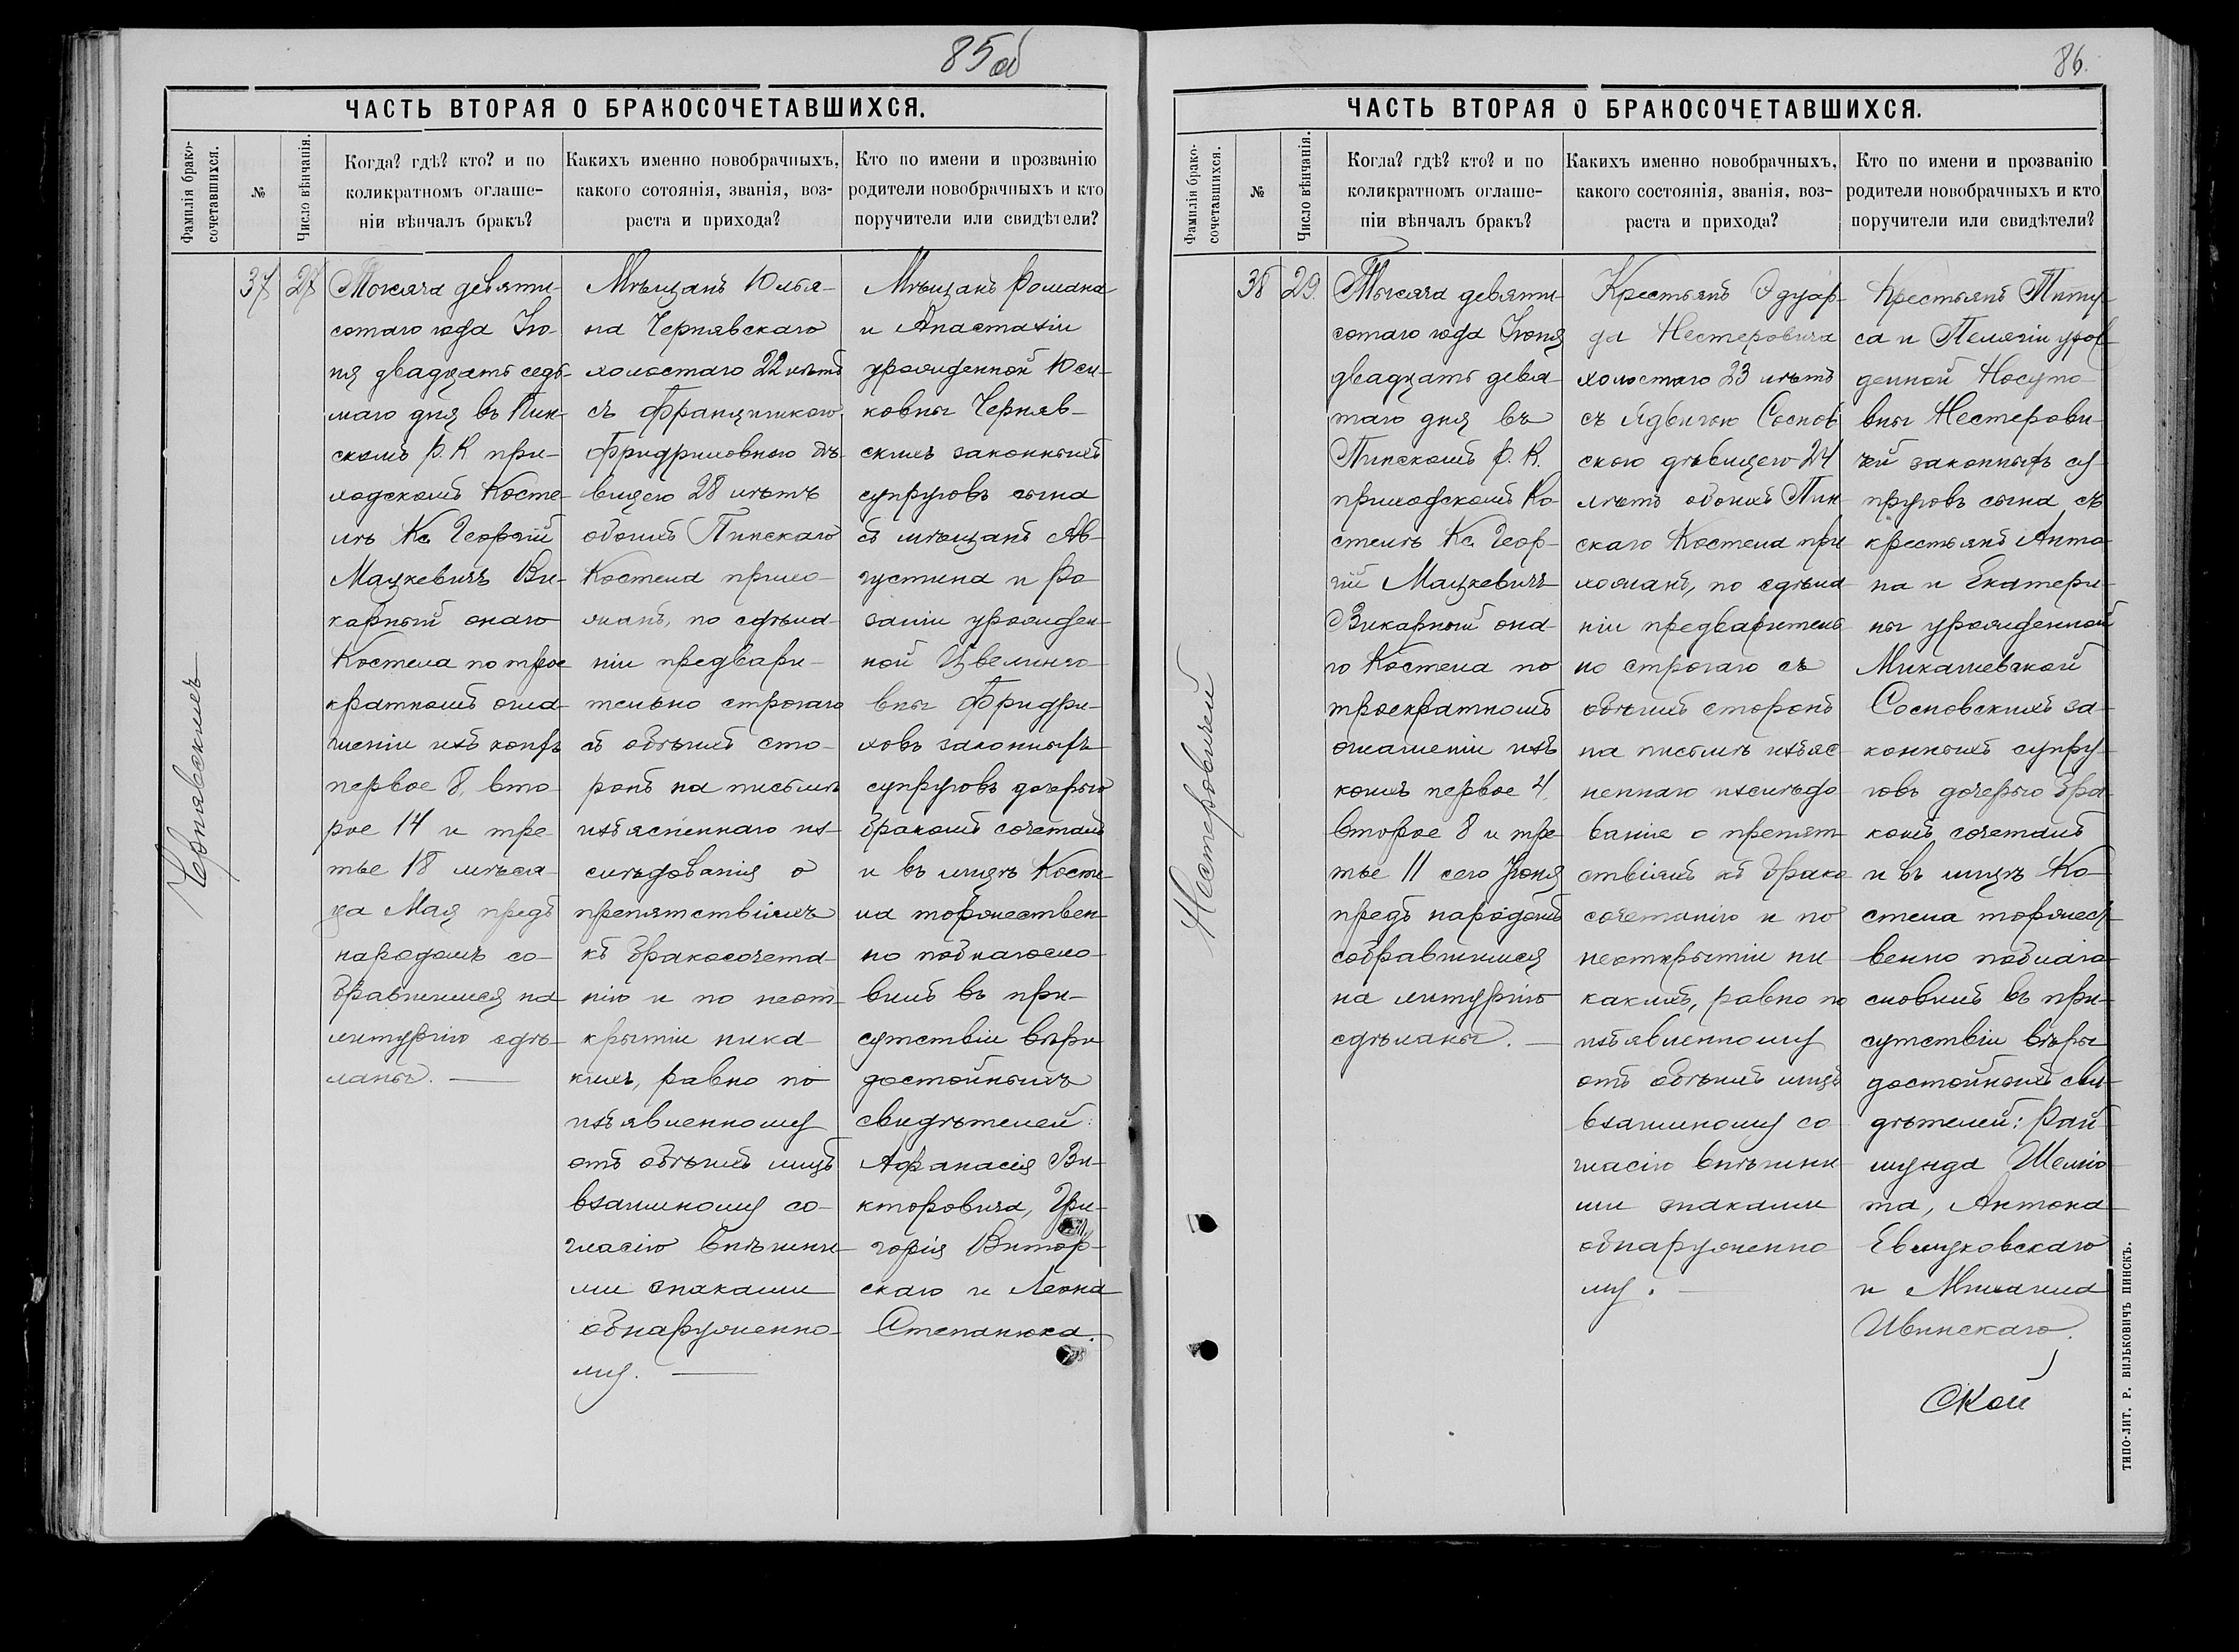 85 об
ЧАСТЬ ВТОРАЯ О БРАКОСОЧЕТАВШИХСЯ.
Фамилія брако-
сочетавшихся.
№
Число вѣнчанія.
Когда? гдѣ? кто? и по
коликратномъ оглаше-
ніи вѣнчалъ бракъ?
Какихъ именно новобрачныхъ,
какого сотоянія, званія, воз-
раста и прихода?
Кто по имени и прозванію
родители новобрачныхъ и кто
поручители или свидѣтели?
Чернявскихъ
37
27
Тысяча девяти-
сотаго года Iю-
ня двадцать седь-
маго дня въ Пин-
скомъ Р. К при-
ходскомъ Косте-
лѣ Кс. Георгій
Мацкевичъ Ви-
карный онаго
Костела по трое
кратномъ огла-
шеніи ихъ коихъ
первое 8, вто-
рое 14 и тре
тье 18 мѣся-
ца Мая предъ
народомъ со-
бравшимся на
литургію сдѣ-
ланы.
Мѣщанъ Юлья-
на Чернявскаго
холостаго 22 лѣтъ
съ Францишкою
Фридриховною дѣ-
вицею 28 лѣтъ
обоихъ Пинскаго
Костела прихо-
жанъ, по сдѣла-
ніи предвари-
тельно строгаго
съ обѣихъ сто-
ронъ на письмѣ
изъясненнаго из-
слѣдованія о
препятствіяхъ
къ бракосочета-
нію и по неот-
крытіи ника-
кихъ, равно по
изъявленному
отъ обѣихъ лицъ
взаимному со-
гласію внѣшни-
ми знаками
обнаруженно-
му.
Мѣщанъ Романа
и Анастазіи
урожденной Юси-
ковны Черняв-
скихъ законныхъ
супруговъ сына
съ мѣщанъ Ав-
густина и Ро-
заліи урожден-
ной Цвелинго-
вны Фридри-
ховъ законныхъ
супруговъ дочерью
бракомъ сочеталъ
и въ лицѣ Косте-
ла торжествен-
но поблагосло-
вилъ въ при-
сутствіи вѣры
достойныхъ
свидѣтелей:
Афанасія Ви-
кторовича, Гри-
горія Витор-
скаго и Леона
Степанюка.
86.
ЧАСТЬ ВТОРАЯ О БРАКОСОЧЕТАВШИХСЯ.
Фамилія брако-
сочетавшихся.
№
Число вѣнчанія.
Когда? гдѣ? кто? и по
коликратномъ оглаше-
ніи вѣнчалъ бракъ?
Какихъ именно новобрачныхъ,
какого состоянія, званія, воз-
раста и прихода?
Кто по имени и прозванію
родители новобрачныхъ и кто
поручители или свидѣтели?
Нестеровичей
38
29.
Тысяча девяти-
сотаго года Iюня
двадцать девя-
таго дня въ
Пинскомъ Р. К.
приходскомъ Ко-
стелѣ Кс. Геор-
гій Мацкевичъ
Викарный она-
го Костела по
троекратномъ
оглашеніи ихъ
коихъ первое 4,
второе 8 и тре
тье 11 сего Iюня
предъ народомъ
собравшимся
на литургію
сдѣланы.
Крестьянъ Эдуар-
да Нестеровича
холостаго 23 лѣтъ
съ Ядвигою Соснов
скою дѣвицею 24
лѣтъ обоихъ Пин
скаго Костела при
хожанъ, по сдѣла
ніи предваритель
но строгаго съ
обѣихъ сторонъ
на письмѣ изъяс
неннаго изслѣдо
ванія о препят-
ствіяхъ къ брако
сочетанію и по
неоткрытіи ни
какихъ, равно по
изъявленному
отъ обѣихъ лицъ
взаимному со
гласію внѣшни
ми знаками
обнаруженно
му.
Крестьянъ Титу-
са и Пелягіи урож
денной Носуто-
вны Нестерови-
чей законныхъ су-
пруговъ сына съ
крестьянъ Анто-
на и Екатери-
ны урожденной
Михалевской
Сосновскихъ за-
конныхъ супру-
говъ дочерью бра-
комъ сочеталъ
и въ лицѣ Ко-
стела торжест-
венно поблаго-
словилъ въ при-
сутствіи вѣры
достойныхъ сви-
дѣтелей: Рай-
мунда Шеліо-
та, Антона
и Михаила
Ивинскаго.
ской
ТИПО-ЛИТ. Р. ВИЛЬКОВИЧЪ ПИНСКЪ.